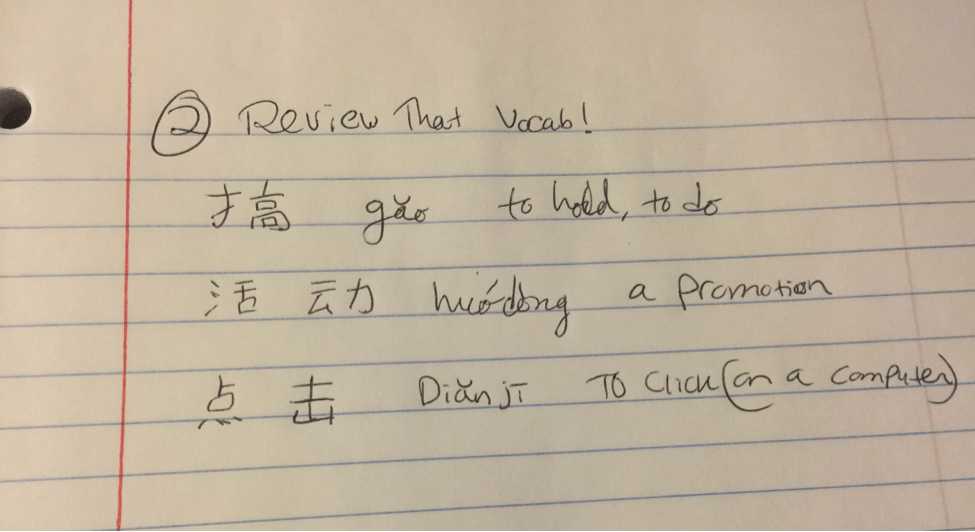 ② Review That Vocab!
搞 gǎo to hold, to do
活动 huódòng a promotion
点击 Diǎnjī To Click (on a computer)